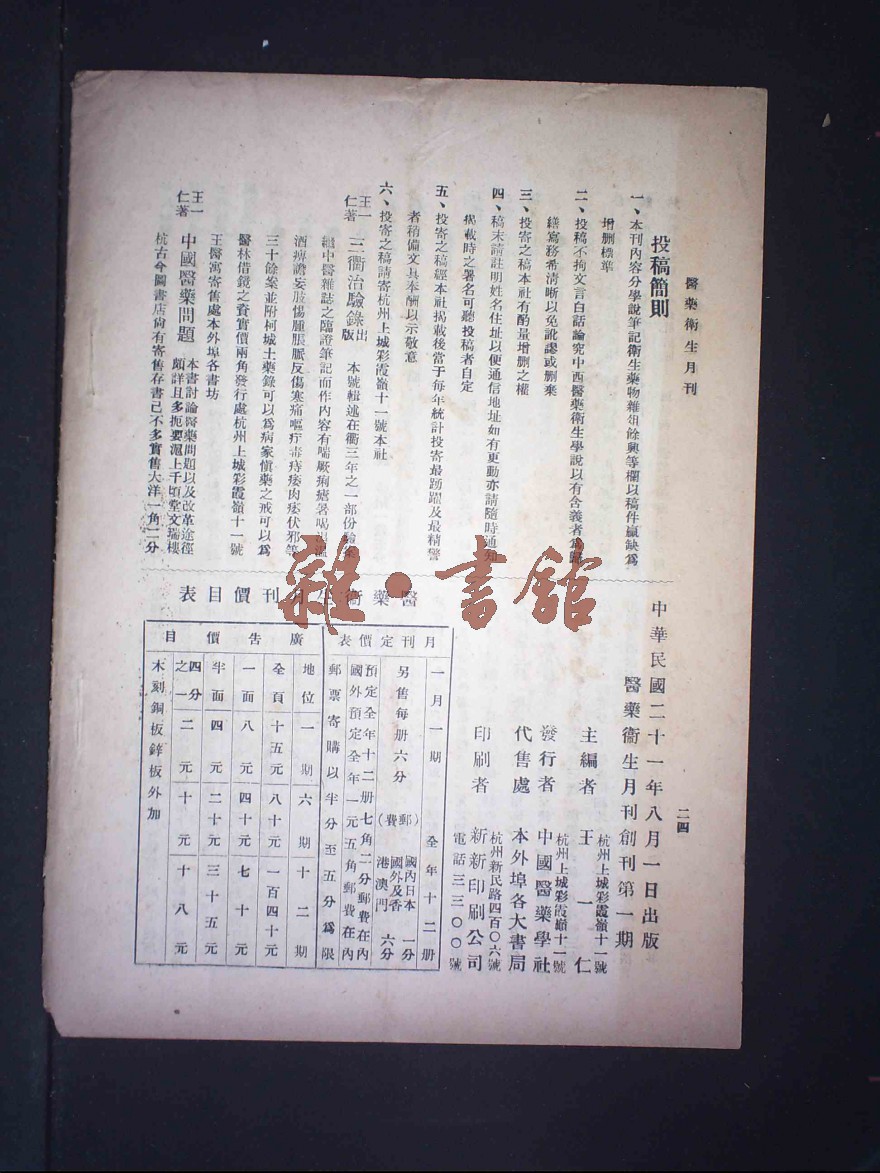 醫藥衛生月刊
二四
投稿簡則
一、本刊內容分學說筆記衛生藥物雜俎餘興等欄以稿件贏缺爲
增删標準
二、投稿不拘文言白話論究中西醫藥衛生學說以有含義者爲
繕寫務希清晰以免訛謬或删棄
三、投寄之稿本社有酌量增删之權
四、稿末請註明姓名住址以便通信地址如有更動亦請隨時通知
揭載時之署名可聽投稿者自定
五、投寄之稿經本社揭載後當于每年統計投寄最踴躍及最精警
者稍備文具奉酬以示敬意
六、投寄之稿請寄杭州上城彩霞嶺十一號本社
王一仁著 三衢治驗錄出版 本號輯述在衢三年之一部份驗案
繼中醫雜誌之臨證筆記而作內容有喘厥痢瘧暑喝
酒疸譫妄肢惕腫脹脈反傷寒痛嘔疔毒痔痿肉痿伏邪等
三十餘案並附柯城土藥錄可以爲病家慎藥之戒可以爲
醫林借鏡之資實價兩角發行處杭州上城彩霞嶺十一號
王醫寓寄售處本外埠各書坊
王一仁著 中國醫藥問題 本書討論醫藥問題以及改革途徑
頗詳且多扼要滬上千頃堂文瑞樓
杭古今圖書店尙有寄售存書已不多實售大洋一角二分
中華民國二十一年八月一日出版
醫藥衞生月刊創刊第一期
主編者 王一仁
杭州上城彩霞嶺十一號
發行者 中國醫藥學社
杭州上城彩霞嶺十一號
代售處 本外埠各大書局
印刷者 新新印刷公司
杭州新民路四百〇六號
電話三三〇〇號
醫藥衞生月刊價目表
月刊定價表
一月一期 全年十二册
另售每册六分 (郵費) 國內日本 一分 國外及香港澳門 六分
預定全年十二册七角二分郵費在內
國外預定全年一元五角郵費在內
郵票寄購以半分至五分爲限
廣告價目
地位 一期 六期 十二期
全頁 十五元 八十元 一百四十元
一面 八元 四十元 七十元
半面 四元 二十元 三十五元
四分之一 二元 十元 十八元
木刻銅板鋅板外加
雜·書館